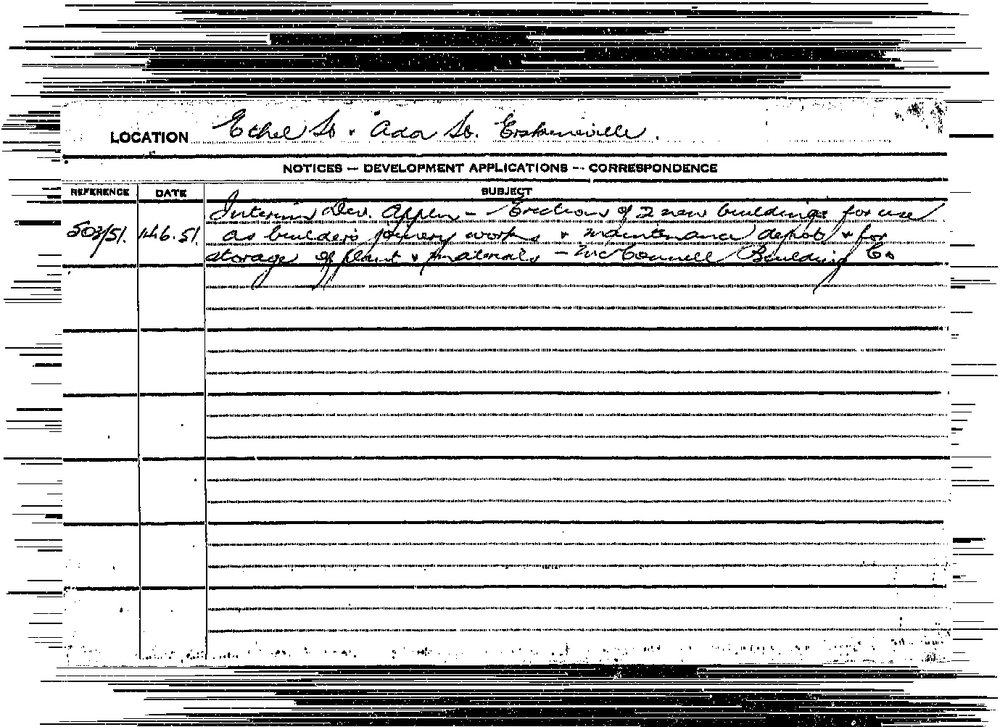 LOCATION Ethel St. & Ada St. Erskineville.
NOTICES — DEVELOPMENT APPLICATIONS — CORRESPONDENCE
REFERENCE DATE SUBJECT
Interim Dev. Appln — Erection of 2 new buildings for use
503/51. 14.6.51. as builders joinery works & maintenance depot & for
storage of plant & materials — McConnell Building Co